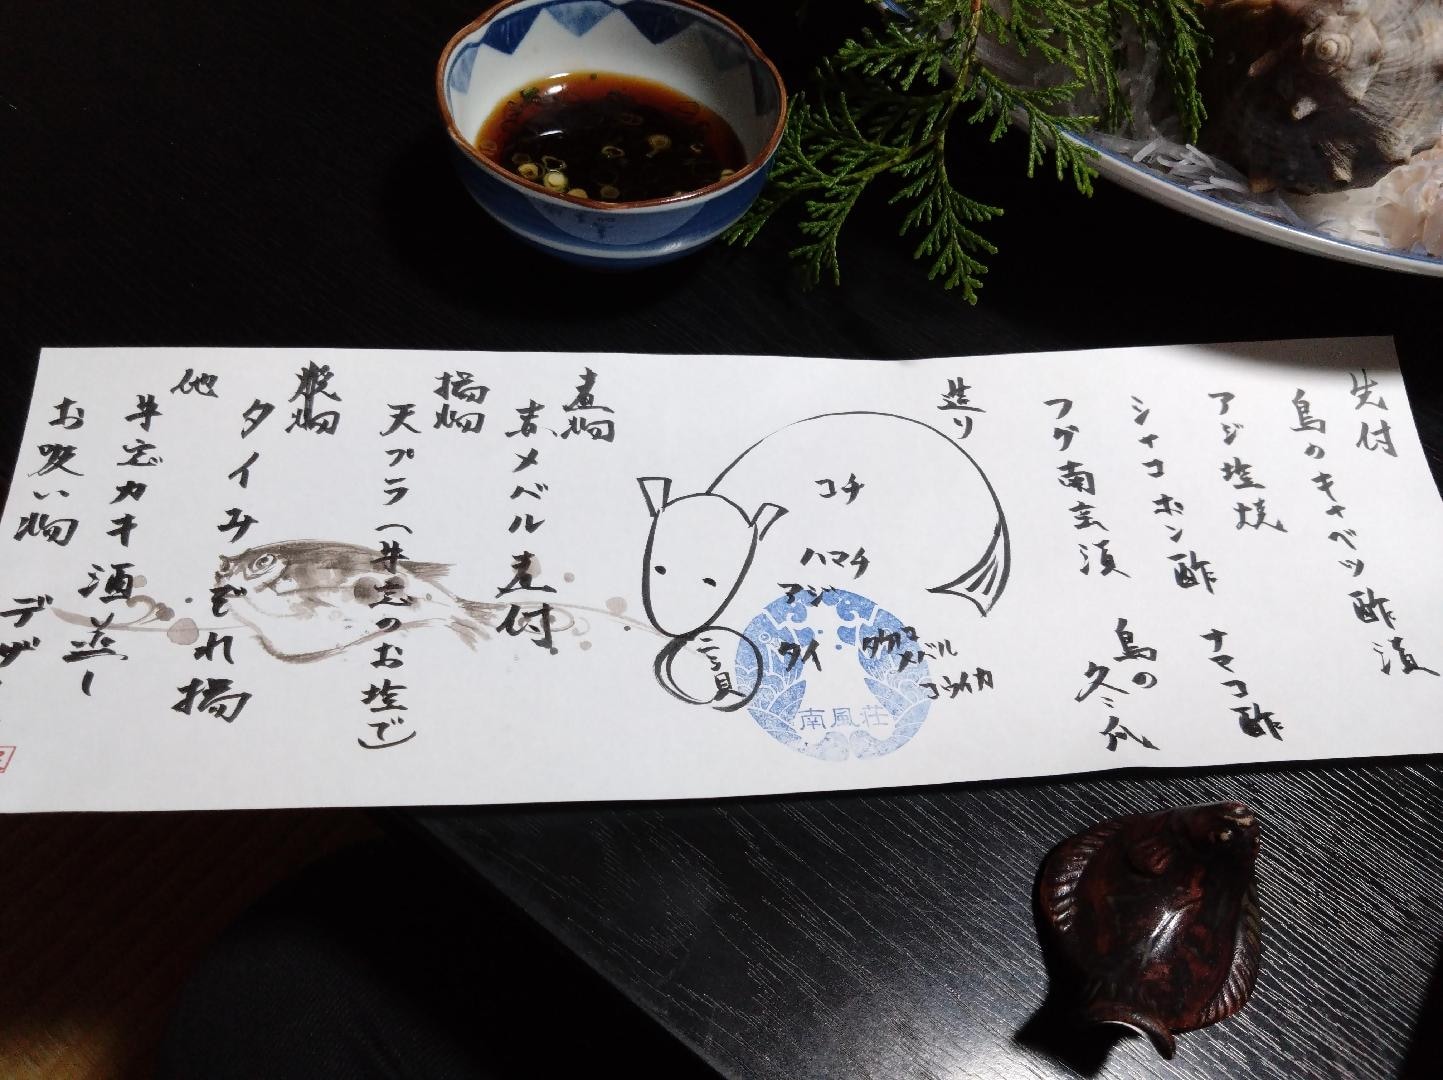 先付
島のキャベツ酢漬
アジ塩焼
ナマコ酢
シャコポン酢
島の
冬瓜
フグ南蛮漬
造り
コチ
ハマチ
アジ
タイ
タカコ
メバル
コウイカ
ニシ貝
南風荘
煮物
赤メバル煮付
揚物
天プラ(牛窓のお塩で)
飯物
タイみぞれ揚
他
牛窓カキ酒蒸し
お吸い物
デザ